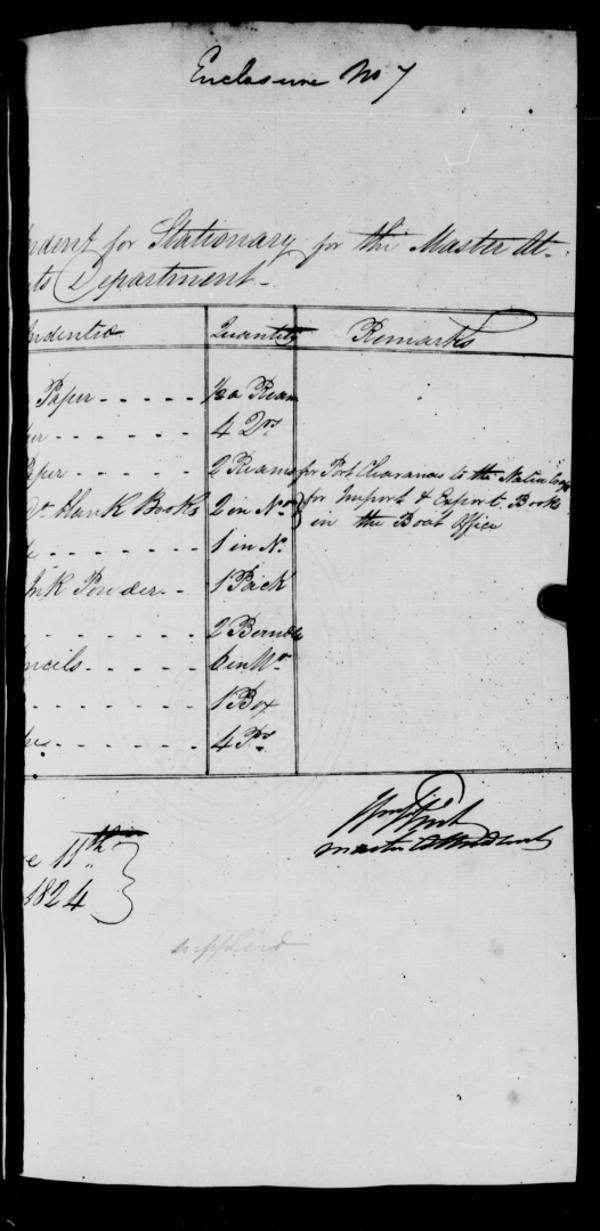 Enclosure No 7
ndent for Stationary for the Master At-
ts Department -
Indented Quantity Remarks
Paper - - - - - ½ a Ream
er - - - - - - 4 Drs
aper - - - - - 2 Reams for Port Clearances to the Native
Blank Books 2 in No } for Import & Export Books
in the Boat Office
- - - - - - - 1 in No
Ink Powder - - 1 Pack
- - - - - - - 2 Bundle
ncils - - - - - 6 in No
- - - - - - - 1 Box
es - - - - - - 4 Ps
Master Attendant
e 11th }
1824
supplied